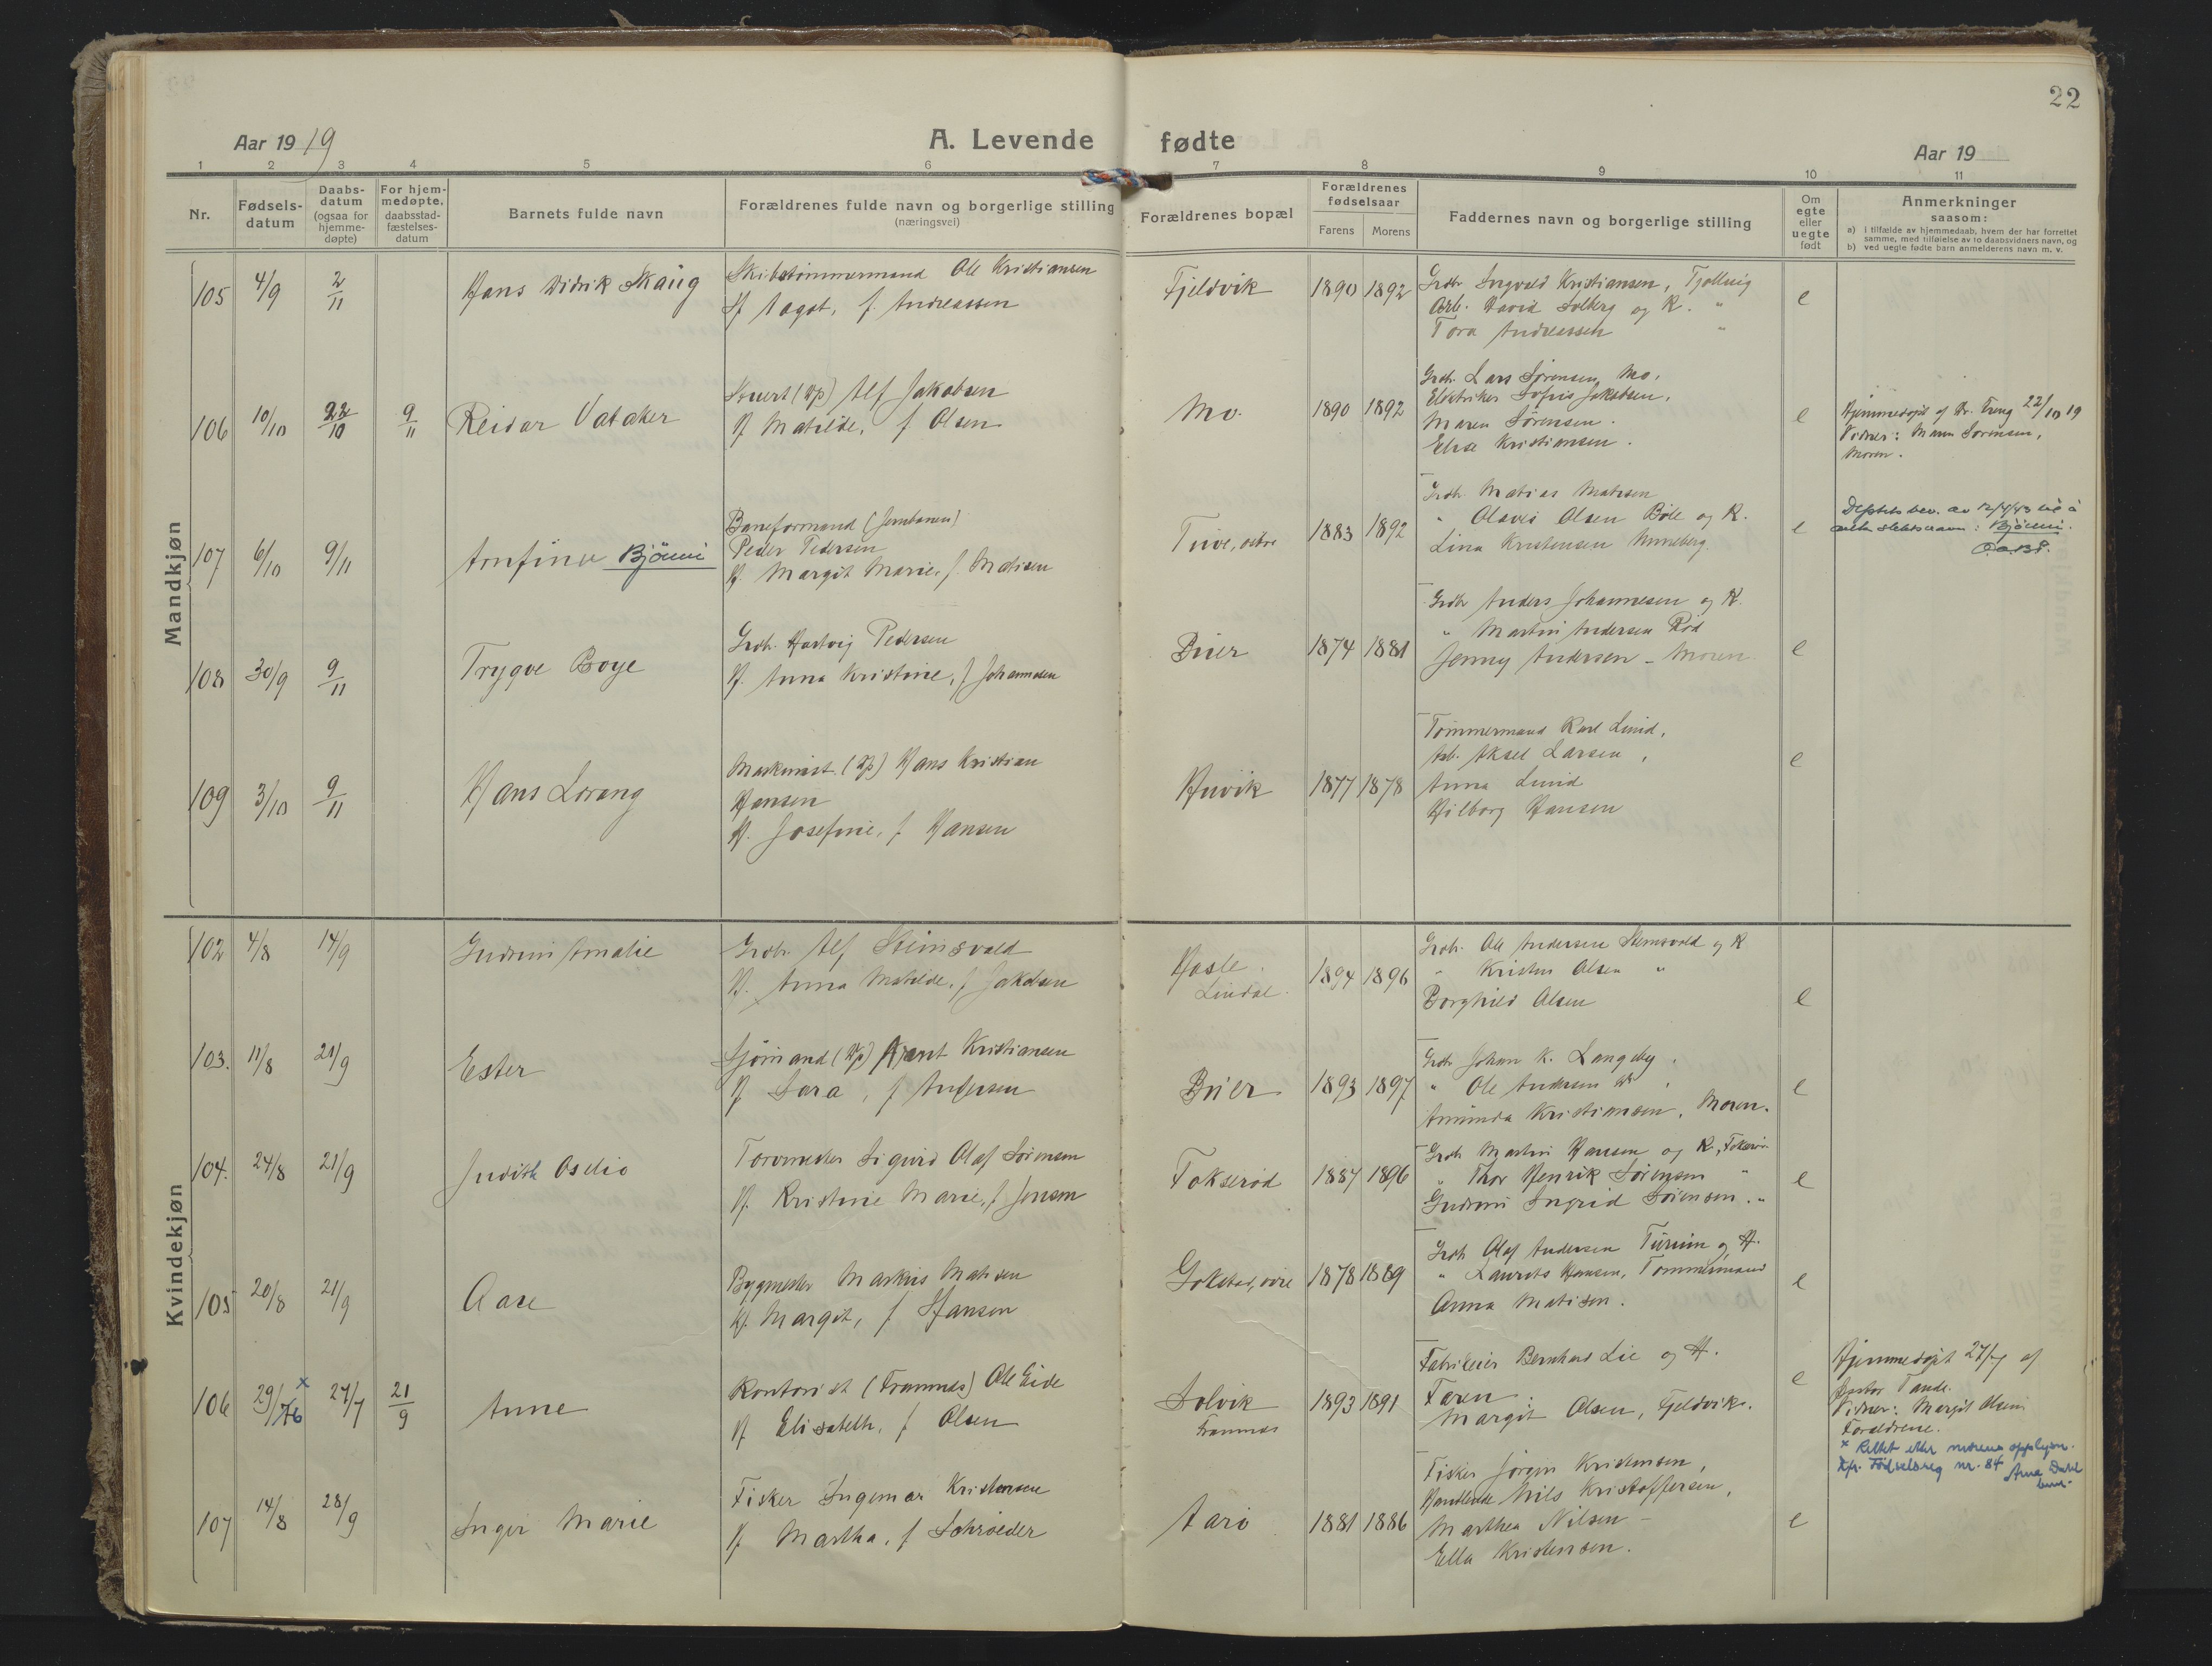 22
Aar 1919
A. Levende fødte
Aar 19
1 2 3 4 5 6 7 8 9 10 11
Nr.
Fødsels-
datum
Daabs-
datum
(ogsaa for
hjemme-
døpte)
For hjem-
medøpte.
daabsstad-
fæstelses-
datum
Barnets fulde navn
Forældrenes fulde navn og borgerlige stilling
(næringsvei)
Forældrenes bopæl
Forældrenes
fødselsaar
Farens Morens
Faddernes navn og borgerlige stilling
Om
egte
eller
uegte
født
Anmerkninger
saasom:
a) i tilfælde av hjemmedaab, hvem der har forrettet
samme, med tilføielse av to daabsvidners navn, og
b) ved uegte fødte barn anmelderens navn m. v.
Mandkjøn
105 4/9 2/11 Hans Didrik Skaug
Skibstømmermand Ole Kristiansen
H Aagot, f. Andreassen
Fjeldvik 1890 1892
Grdr Ingvald Kristiansen, Tjølling
Arb. David Solberg og K. "
Tora Andreassen "
e
106 10/10 22/10 9/11 Reidar Vataker
Stuert (Hp) Alf Jakobsen
H Matilde, f Olsen
Mo. 1890 1892
Grdr. Lars Sørensen, Mo,
Elektriker Sofus Jakobsen,
Maren Sørensen.
Elise Kristiansen.
e
Hjemmedøpt af Dr. 22/10 19
Vidner: Maren Sørensen,
Moren.
107 6/10 9/11 Arnfinn Bjönni
Baneformand (Jernbanen)
Peder Pedersen
H. Margit Marie, f. Matisen
østre 1883 1892
Grdr. Matias Matisen
" Olaves Olsen Bøle og K.
Lina Kristensen
e
Depktets bev. av 12/4/43 til å
slektsnavn: Bjönni.
108 30/9 9/11 Trygve Boye
Grdr. Hartvig Pedersen
H. Anna Kristine, f Johannesen
1874 1881
Grdr Anders Johannesen og K.
" Martin Andersen Rød
Jenny Andersen – Moren
e
109 3/10 9/11 Hans Lorang
Maskinist. (Hp) Hans Kristian
Hansen
H. Josefine, f Hansen
Huvik 1877 1878
Tømmermand Karl Lund,
Arb. Aksel Larsen,
Anna Lund
Hilborg Hansen
e
Kvindekjøn
102 4/8 14/9 Gudrun Amalie
Grdr. Alf Stemsvold
H. Anna Matilde, f Jakobsen
Hasle.
Lindal.
1894 1896
Grdr. Ole Andersen Stemsvold og K
" Kristen Olsen "
Borghild Olsen
e
103. 11/8 21/9 Ester
Sjømand (Hp) Kristiansen
H Sara, f Andersen
1893 1897
Grdr Johan K. Langeby.
" Ole Andersen
Aminda Kristiansen, Moren.
e
104. 24/8 21/9 Judith Oselio
Torvmester Sigurd Olaf Sørensen
H. Kristine Marie, f Jensen
Fokserød 1887 1896
Grdr Martin Hansen og K,
" Thor Henrik Sørensen "
Gudrun Ingrid Sørensen. "
e
105 20/8 21/9 Aase
Bygmester Markus Matisen
H. Margit, f Hansen
Gokstad, øvre 1878 1889
Grdr Olaf Andersen og H.
" Laurits Hansen, Tømmermand
Anna Matisen.
e
106 29/6 x 27/7 21/9 Anne
Kontorist (Framnæs) Ole Eide
H Elisabeth, f Olsen
Solvik
Framnæs
1893 1891
Fabrikeier Bernhard Lie og H.
Faren
Margit Olsen, Fjeldvik.
e
Hjemmedøpt 27/7 af
Pastor Tande.
Vidner: Margit Olsen
Forældrene.
x Rettet etter morens opplysn.
Kfr. Fødselsreg nr. 84
107 14/8 28/9 Inger Marie
Fisker Ingemar Kristensen
H Martha, f Schrøeder
Aarø 1881 1886
Fisker Jørgen Kristensen,
Nils Kristoffersen,
Marthea Nilsen –
Ella Kristensen.
e